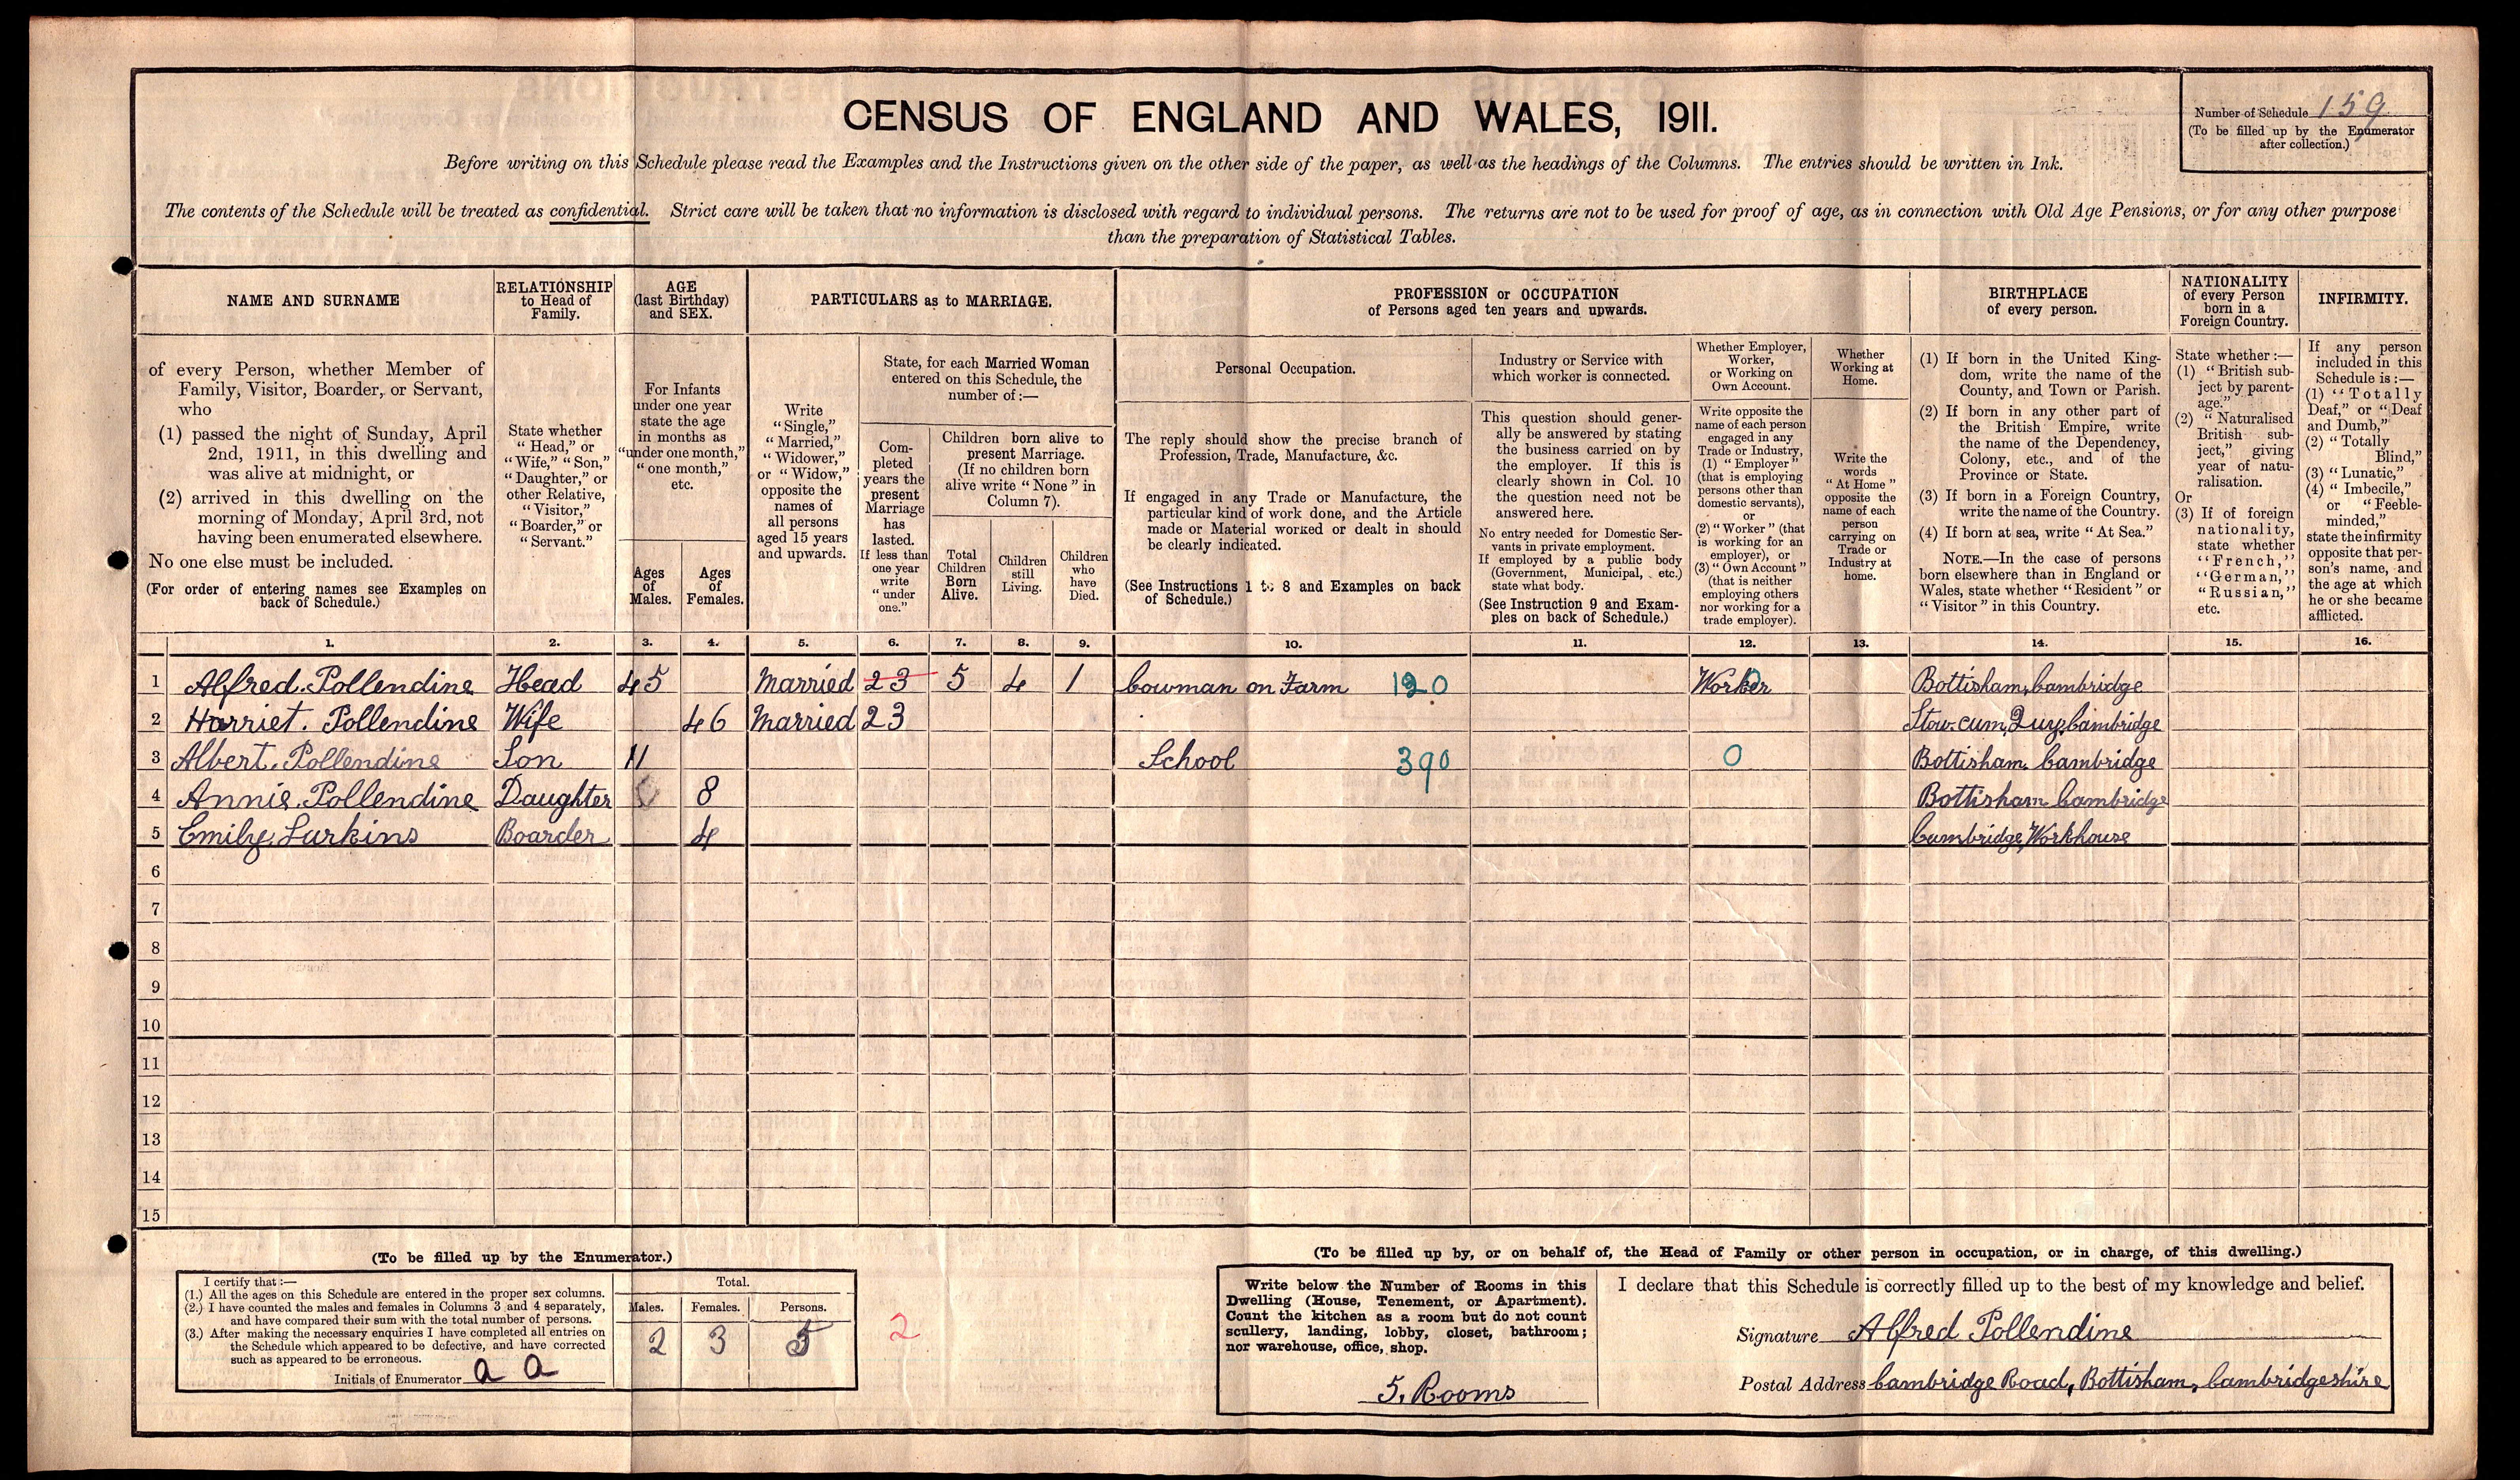 CENSUS OF ENGLAND AND WALES, 1911.
Number of Schedule 159
(To be filled up by the Enumerator
after collection.)
Before writing on this Schedule please read the Examples and the Instructions given on the other side of the paper, as well as the headings of the Columns. The entries should be written in Ink.
The contents of the Schedule will be treated as confidential. Strict care will be taken that no information is disclosed with regard to individual persons. The returns are not to be used for proof of age, as in connection with Old Age Pensions, or for any other purpose
than the preparation of Statistical Tables.
NAME AND SURNAME
of every Person, whether Member of
Family, Visitor, Boarder, or Servant,
who
(1) passed the night of Sunday, April
2nd, 1911, in this dwelling and
was alive at midnight, or
(2) arrived in this dwelling on the
morning of Monday, April 3rd, not
having been enumerated elsewhere.
No one else must be included.
(For order of entering names see Examples on
back of Schedule.)
RELATIONSHIP
to Head of
Family.
State whether
"Head," or
"Wife," "Son,"
"Daughter," or
other Relative,
"Visitor,"
"Boarder," or
"Servant."
AGE
(last Birthday)
and SEX.
For Infants
under one year
state the age
in months as
"under one month,"
"one month,"
etc.
Ages
of
Males.
Ages
of
Females.
PARTICULARS as to MARRIAGE.
Write
"Single,"
"Married,"
"Widower,"
or "Widow,"
opposite the
names of
all persons
aged 15 years
and upwards.
State, for each Married Woman
entered on this Schedule, the
number of:—
Com-
pleted
years the
present
Marriage
has
lasted.
If less than
one year
write
"under
one."
Children born alive to
present Marriage.
(If no children born
alive write "None" in
Column 7).
Total
Children
Born
Alive.
Children
still
Living.
Children
who
have
Died.
PROFESSION or OCCUPATION
of Persons aged ten years and upwards.
Personal Occupation.
The reply should show the precise branch of
Profession, Trade, Manufacture, &c.
If engaged in any Trade or Manufacture, the
particular kind of work done, and the Article
made or Material worked or dealt in should
be clearly indicated.
(See Instructions 1 to 8 and Examples on back
of Schedule.)
Industry or Service with
which worker is connected.
This question should gener-
ally be answered by stating
the business carried on by
the employer. If this is
clearly shown in Col. 10
the question need not be
answered here.
No entry needed for Domestic Ser-
vants in private employment.
If employed by a public body
(Government, Municipal, etc.)
state what body.
(See Instruction 9 and Exam-
ples on back of Schedule.)
Whether Employer,
Worker,
or Working on
Own Account.
Write opposite the
name of each person
engaged in any
Trade or Industry,
(1) "Employer"
(that is employing
persons other than
domestic servants),
or
(2) "Worker" (that
is working for an
employer), or
(3) "Own Account"
(that is neither
employing others
nor working for a
trade employer).
Whether
Working at
Home.
Write the
words
"At Home"
opposite the
name of each
person
carrying on
Trade or
Industry at
home.
BIRTHPLACE
of every person.
(1) If born in the United King-
dom, write the name of the
County, and Town or Parish.
(2) If born in any other part of
the British Empire, write
the name of the Dependency,
Colony, etc., and of the
Province or State.
(3) If born in a Foreign Country,
write the name of the Country.
(4) If born at sea, write "At Sea."
NOTE.—In the case of persons
born elsewhere than in England or
Wales, state whether "Resident" or
"Visitor" in this Country.
NATIONALITY
of every Person
born in a
Foreign Country.
State whether:—
(1) "British sub-
ject by parent-
age."
(2) "Naturalised
British sub-
ject," giving
year of natu-
ralisation.
Or
(3) If of foreign
nationality,
state whether
"French,"
"German,"
"Russian,"
etc.
INFIRMITY.
If any person
included in this
Schedule is:—
(1) "Totally
Deaf," or "Deaf
and Dumb,"
(2) "Totally
Blind,"
(3) "Lunatic,"
(4) "Imbecile,"
or "Feeble-
minded,"
state the infirmity
opposite that per-
son's name, and
the age at which
he or she became
afflicted.
1. 2. 3. 4. 5. 6. 7. 8. 9. 10. 11. 12. 13. 14. 15. 16.
1 Alfred. Pollendine Head 45 Married 23 5 4 1 Cowman on Farm 120 Worker 0 Bottisham, Cambridge
2 Harriet. Pollendine Wife 46 Married 23 Stow-cum, Quy, Cambridge
3 Albert. Pollendine Son 11 School 390 0 Bottisham. Cambridge
4 Annie. Pollendine Daughter 8 Bottisham Cambridge
5 Emily. Larkins Boarder 4 Cambridge, Workhouse
6
7
8
9
10
11
12
13
14
15
(To be filled up by the Enumerator.)
I certify that:—
(1.) All the ages on this Schedule are entered in the proper sex columns.
(2.) I have counted the males and females in Columns 3 and 4 separately,
and have compared their sum with the total number of persons.
(3.) After making the necessary enquiries I have completed all entries on
the Schedule which appeared to be defective, and have corrected
such as appeared to be erroneous.
Initials of Enumerator a a
Total.
Males. Females. Persons.
2 3 5
2
(To be filled up by, or on behalf of, the Head of Family or other person in occupation, or in charge, of this dwelling.)
Write below the Number of Rooms in this
Dwelling (House, Tenement, or Apartment).
Count the kitchen as a room but do not count
scullery, landing, lobby, closet, bathroom;
nor warehouse, office, shop.
5. Rooms
I declare that this Schedule is correctly filled up to the best of my knowledge and belief.
Signature Alfred Pollendine
Postal Address Cambridge Road, Bottisham, Cambridgeshire